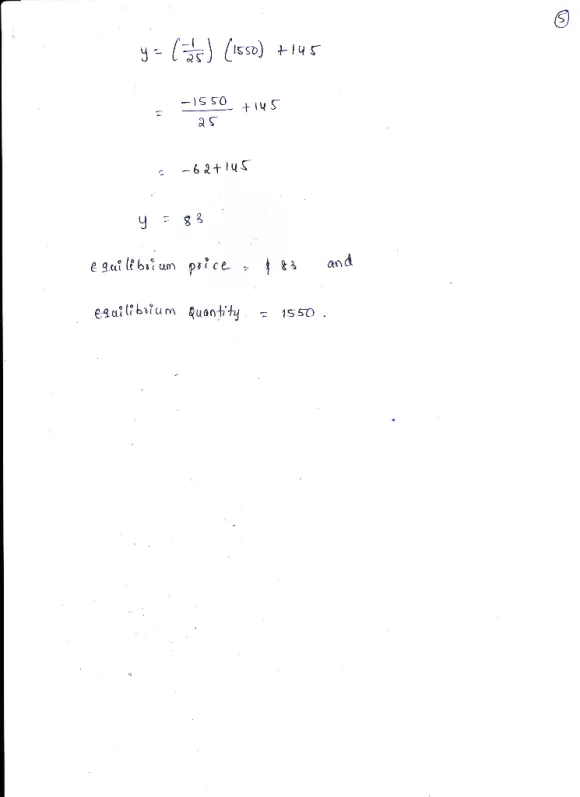 ⑤
y = (-1/25) (1550) + 145
= -1550/25 + 145
= -62 + 145
y = 83
equilibrium price = $ 83 and
equilibrium Quantity = 1550 .